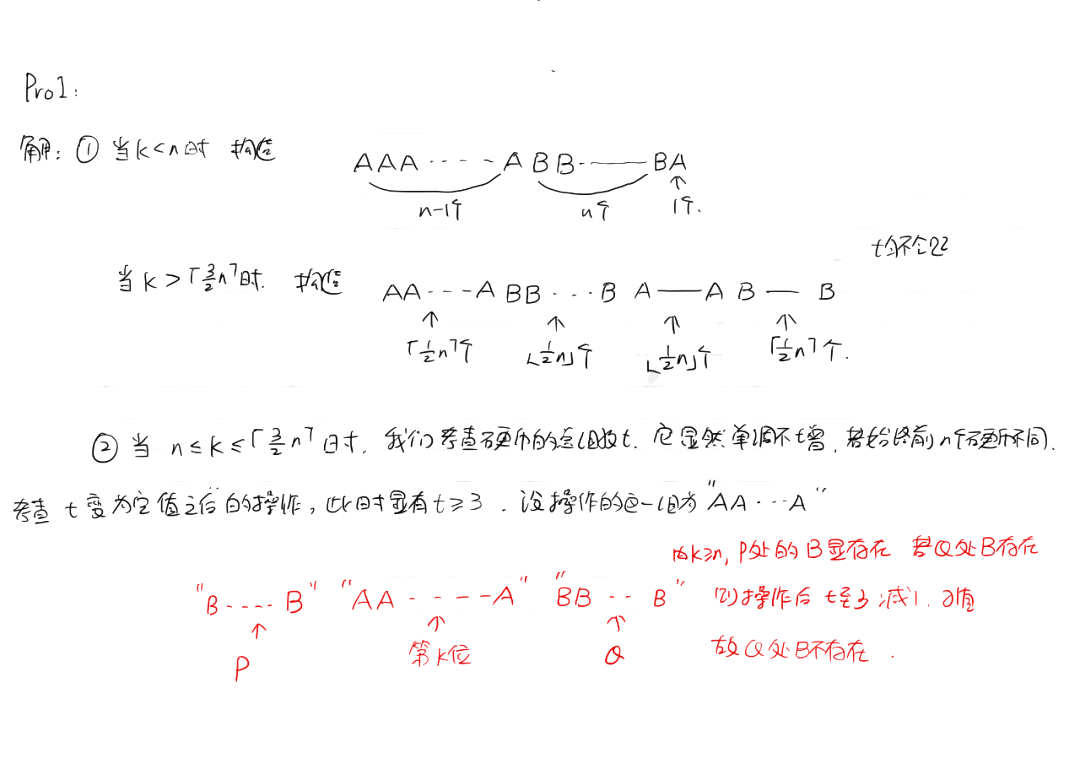 Pro1:
解: ① 当 k<n 时 构造
AAA ···· A BB —— BA
n-1个 n个 1个.
均不合题
当 k>⌈3/2 n⌉时. 构造 AA···A BB···B A——A B——B
⌈1/2 n⌉个 ⌊1/2 n⌋个 ⌊1/2 n⌋个 ⌈1/2 n⌉个.
② 当 n≤k≤⌈3/2 n⌉ 时. 我们考查硬币的总组数t. 它显然单调不增. 若始终前n个硬币不同.
考查 t 变为定值之后的操作, 此时显有t≥3. 设操作的这一组为 "AA···A"
由k≥n, P处的B显存在 若Q处B存在
"B····B" "AA····A" "BB··B" 则操作后 t至少减1. 矛盾
P 第k位 Q 故Q处B不存在.